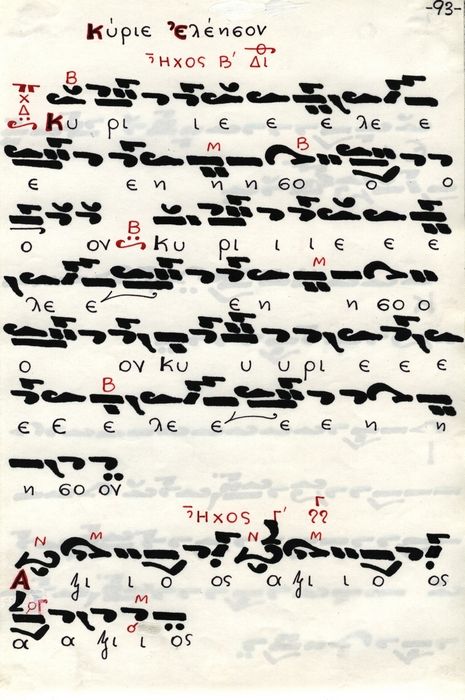 -93-
Κύριε Ἐλέησον
Ἦχος Β΄ Δι
Β
Κυ ρι ι ε ε ε λε ε
Μ Β
ε εη η η η σο ο ο
Β
ο ον Κυ ρι ι ι ε ε ε
Μ
λε ε ε η η σο ο
ο ον Κυ υ υ ρι ε ε ε
Β
ε ε ε λε ε ε ε η η
η σο ον
Ἦχος Γ΄ Γ
Ν Μ Ν Μ
Α ξι ι ο ος α ξι ι ο ος
Μ
α α ξι ι ος